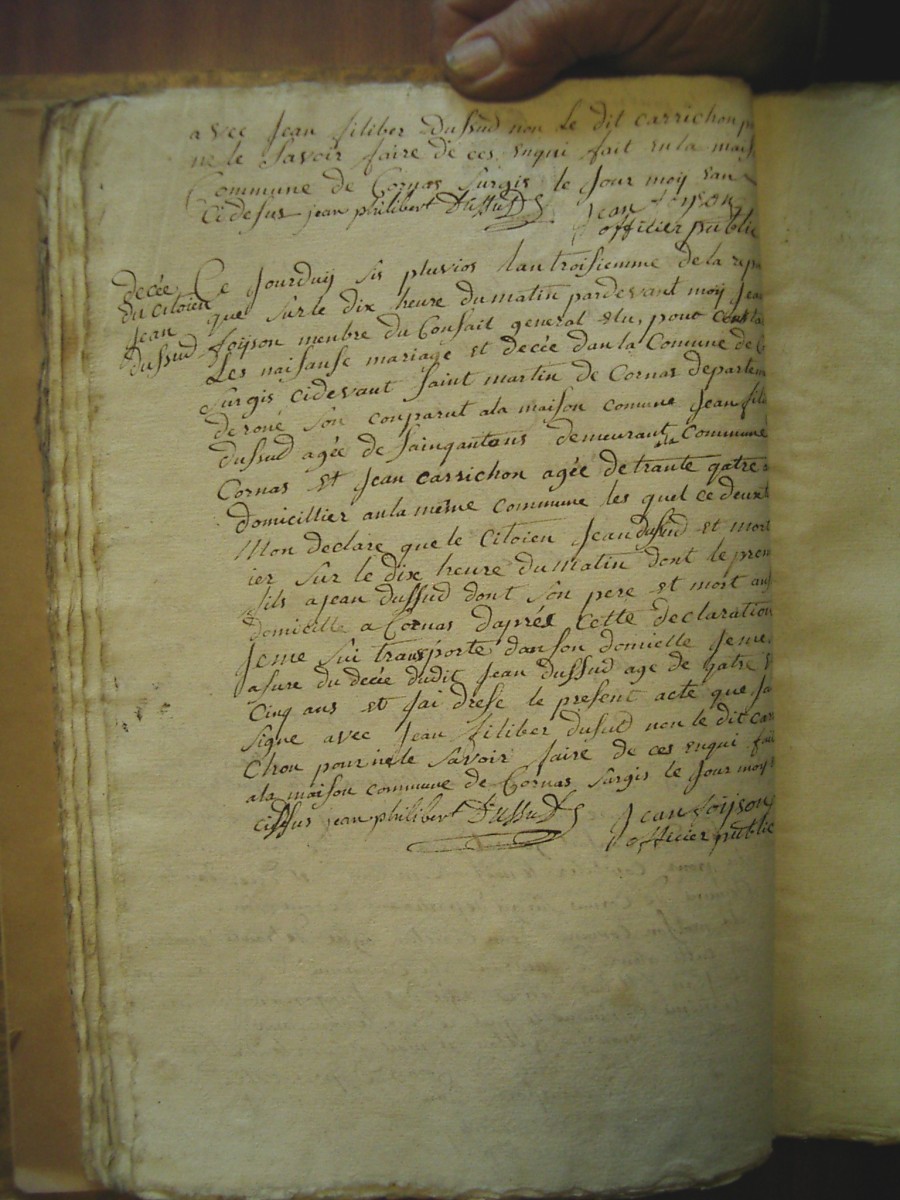 avec Jean filiber Dussud non le dit carrichon p
ne le savoir faire de ces enqui fait en la mais
Commune de Cornas surgis le jour moy ean
Cidesus jean philibert Dussud Jean foijson
officier public
decée
du citoien
Jean
dussud
Ce Jourduij sis pluvios lan troisiemme de la repu
que sur le dix heure du matin pardevant moy Jean
foijson menbre du Consait general elu, pour
Les naisanse mariage et decée dan la Comune de C
surgis cidevant saint martin de Cornas departem
de roné son conparut ala maison comune Jean fili
dussud agée de sainqantans demeurant a la Commune
Cornas et Jean carrichon agée de trante qatre
domicillier an la méme commune les quel ce deux
Mon declare que le Citoien Jean dussud et mort
ier sur le dix heure du matin dont le prem
fils a jean dussud dont son pere et mort an
domicille a Cornas daprée cette declaration
Jeme sui transporte dan son domicille Jeme
asure du decée dudit Jean dussud age de qatre
Cinq ans et jai drese le present acte que Ja
signe avec Jean filiber dusud non le dit carri
chon pour ne le savoir faire de ces enqui fai
ala maison commune de Cornas surgis le jour moy
cidesus jean philibert Dussud Jean foijson
officier public